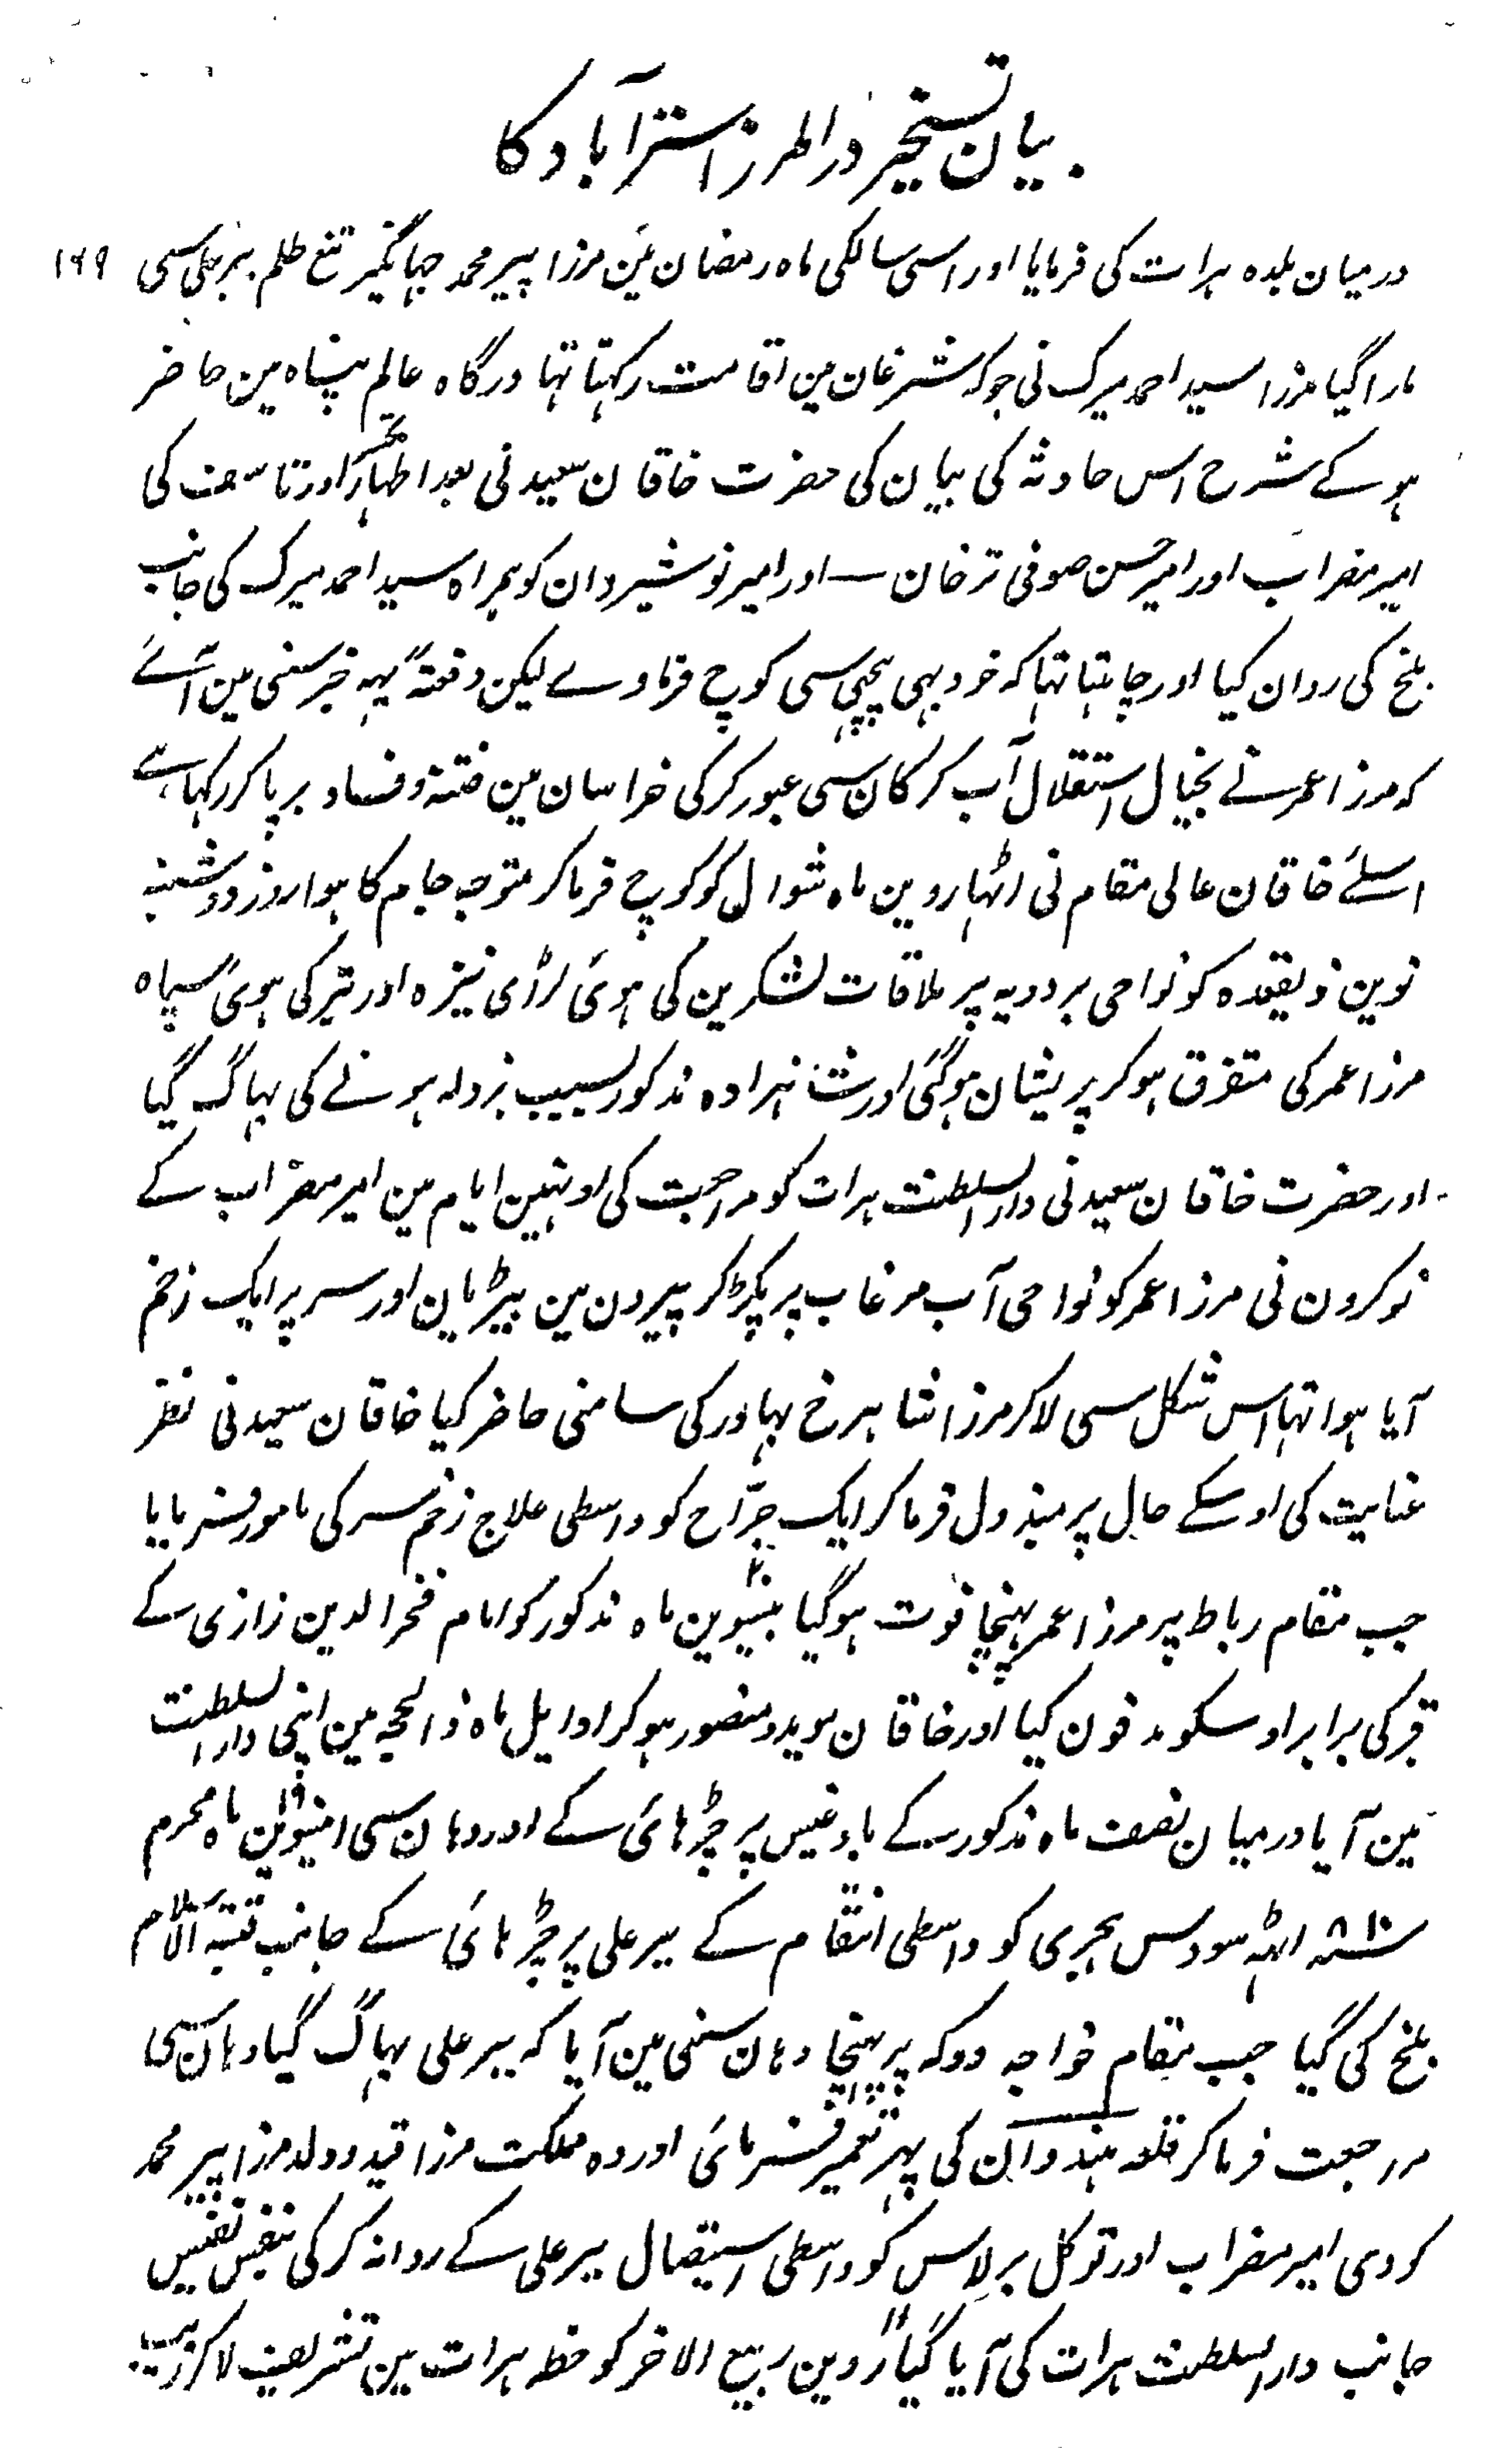 بیان تسخیر دارالمرز استرآباد کا
درمیان بلدہ ہرات کی فرمایا اور اسی سالکی ماہ رمضان مین مرزا پیر محمد جہانگیر تیغ ظلم پیر علی سی ۱۴۹
مارا گیا مرزا سید احمد میرک نی جو کہ شبرغان مین اقامت رکہتا تہا درگاہ عالم پناہ مین حاضر
ہو کے شرح اس حادثہ کی بیان کی حضرت خاقان سعید نی بعد اظہار تحیر اور تاسف کی
امیر مضراب اور امیر حسن صوفی ترخان اور امیر نوشیروان کو ہمراہ سید احمد میرک کی جانب
بلخ کی روان کیا اور چاہتا تہا کہ خود بہی پیچہی سی کوچ فرماوے لیکن دفعتہً یہہ خبر سنی مین آئے
کہ مرزا عمر نے بخیال استقلال آب کرکان سی عبور کر کی خراسان مین فتنہ و فساد برپا کر رکہا ہے
اسلئے خاقان عالی مقام نی اٹہاروین ماہ شوال کو کوچ فرما کر متوجہ جام کا ہوا روز دوشنبہ
نوین ذیقعدہ کو نواحی بردویہ پر ملاقات لشکرین کی ہوئی لڑائی نیزہ اور تیر کی ہوئی سپاہ
مرزا عمر کی متفرق ہو کر پریشان ہو گئی اور شاہزادہ مذکور بسبب بزدلہ ہونے کی بہاگ گیا
اور حضرت خاقان سعید نی دارالسلطنت ہرات کو مراجعت کی اونہین ایام مین امیر مضراب کے
نوکرون نی مرزا عمر کو نواحی آب مرغاب پر پکڑ کر پیرون مین بیڑیان اور سر پر ایک زخم
آیا ہوا تہا اس شکل سی لا کر مرزا شاہرخ بہادر کی سامنی حاضر کیا خاقان سعید نی نظر
عنایت کی اوسکے حال پر مبذول فرما کر ایک جرّاح کو واسطی علاج زخم سر کی مامور فرمایا
جب مقام رباط پر مرزا عمر پہنچا فوت ہو گیا بیسوین ۲۰ ماہ مذکور کو امام فخر الدین رازی کے
قبر کی برابر اوسکو مدفون کیا اور خاقان موید و منصور ہو کر اوایل ماہ ذالحجہ مین اپنی دارالسلطنت
مین آیا درمیان نصف ماہ مذکور کے بادغیس پر چڑہائی کے اور وہان سی انیسوین ۱۹ ماہ محرم
۸۱۰ سنہ اٹہہ سو دس ہجری کو واسطی انتقام کے پیر علی پر چڑہائی کے جانب قبۃ الاسلام
بلخ کی گیا جب مقام خواجہ دوکہ پر پہنچا وہان سنی مین آیا کہ پیر علی بہاگ گیا وہان سی
مرجعت فرما کر قلعہ ہندوان کی پہر تعمیر فرمائی اور وہ مملکت مرزا قیدو ولد مرزا پیر محمد
کو دی امیر مضراب اور توکل برلاس کو واسطی استیصال پیر علی کے روانہ کر کی بنفس نفیس
جانب دارالسلطنت ہرات کی آیا گیاروین ۱۱ ربیع الاخر کو خطہ ہرات مین تشریف لا کر